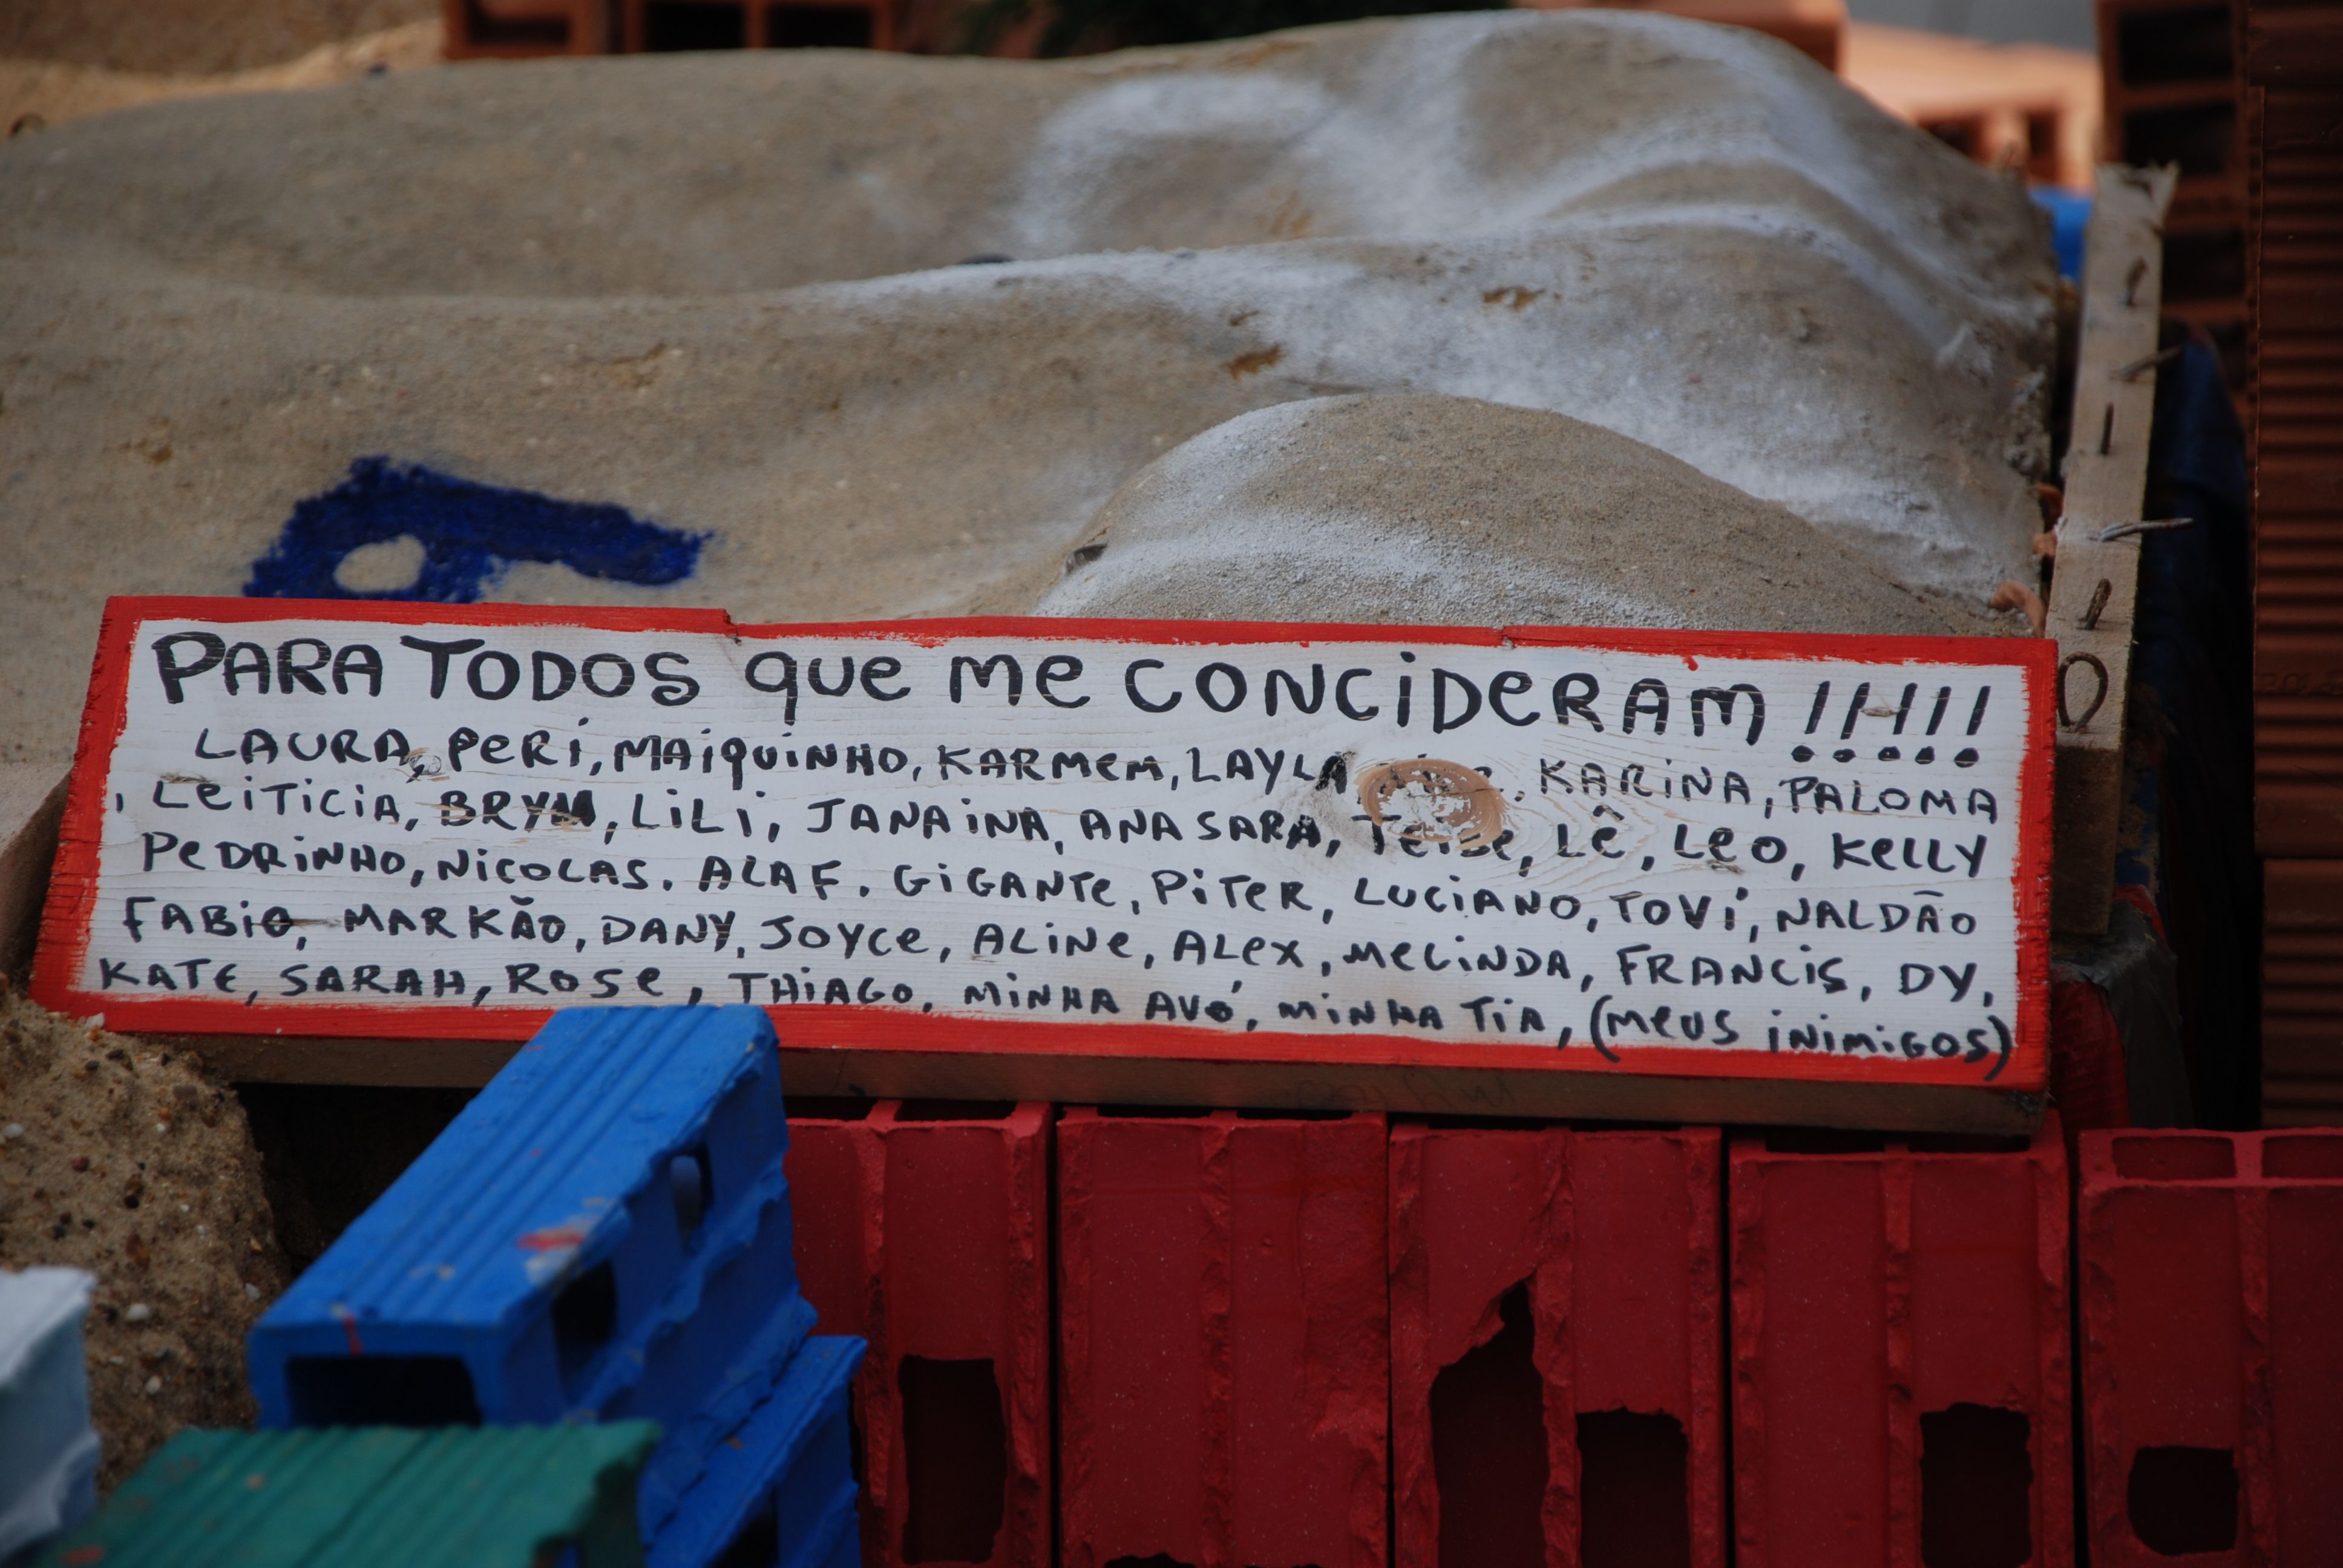 PARA TODOS que me CONCiDeRAM !!!!!
LAURA, PeRi, MAiquiNHO, KARMeM, LAYLA , KARiNA, PALOMA
, LeiTiCiA, BRYM, LiLi, JANAiNA, ANA SARA, Teise, LÊ, Leo, KeLLY
PeDRiNHO, NiCOLAS. ALAF. GiGANTe, PiTeR, LUCiANO, TOVi, NALDÃO
FABiO, MARKÃO, DANY, JOYCe, ALiNe, ALeX, MeLiNDA, FRANCiS, DY,
KATE, SARAH, ROSe, THiAGO, MiNHA AVÓ, MiNHA TiA, (MeUS iNiMiGOS)